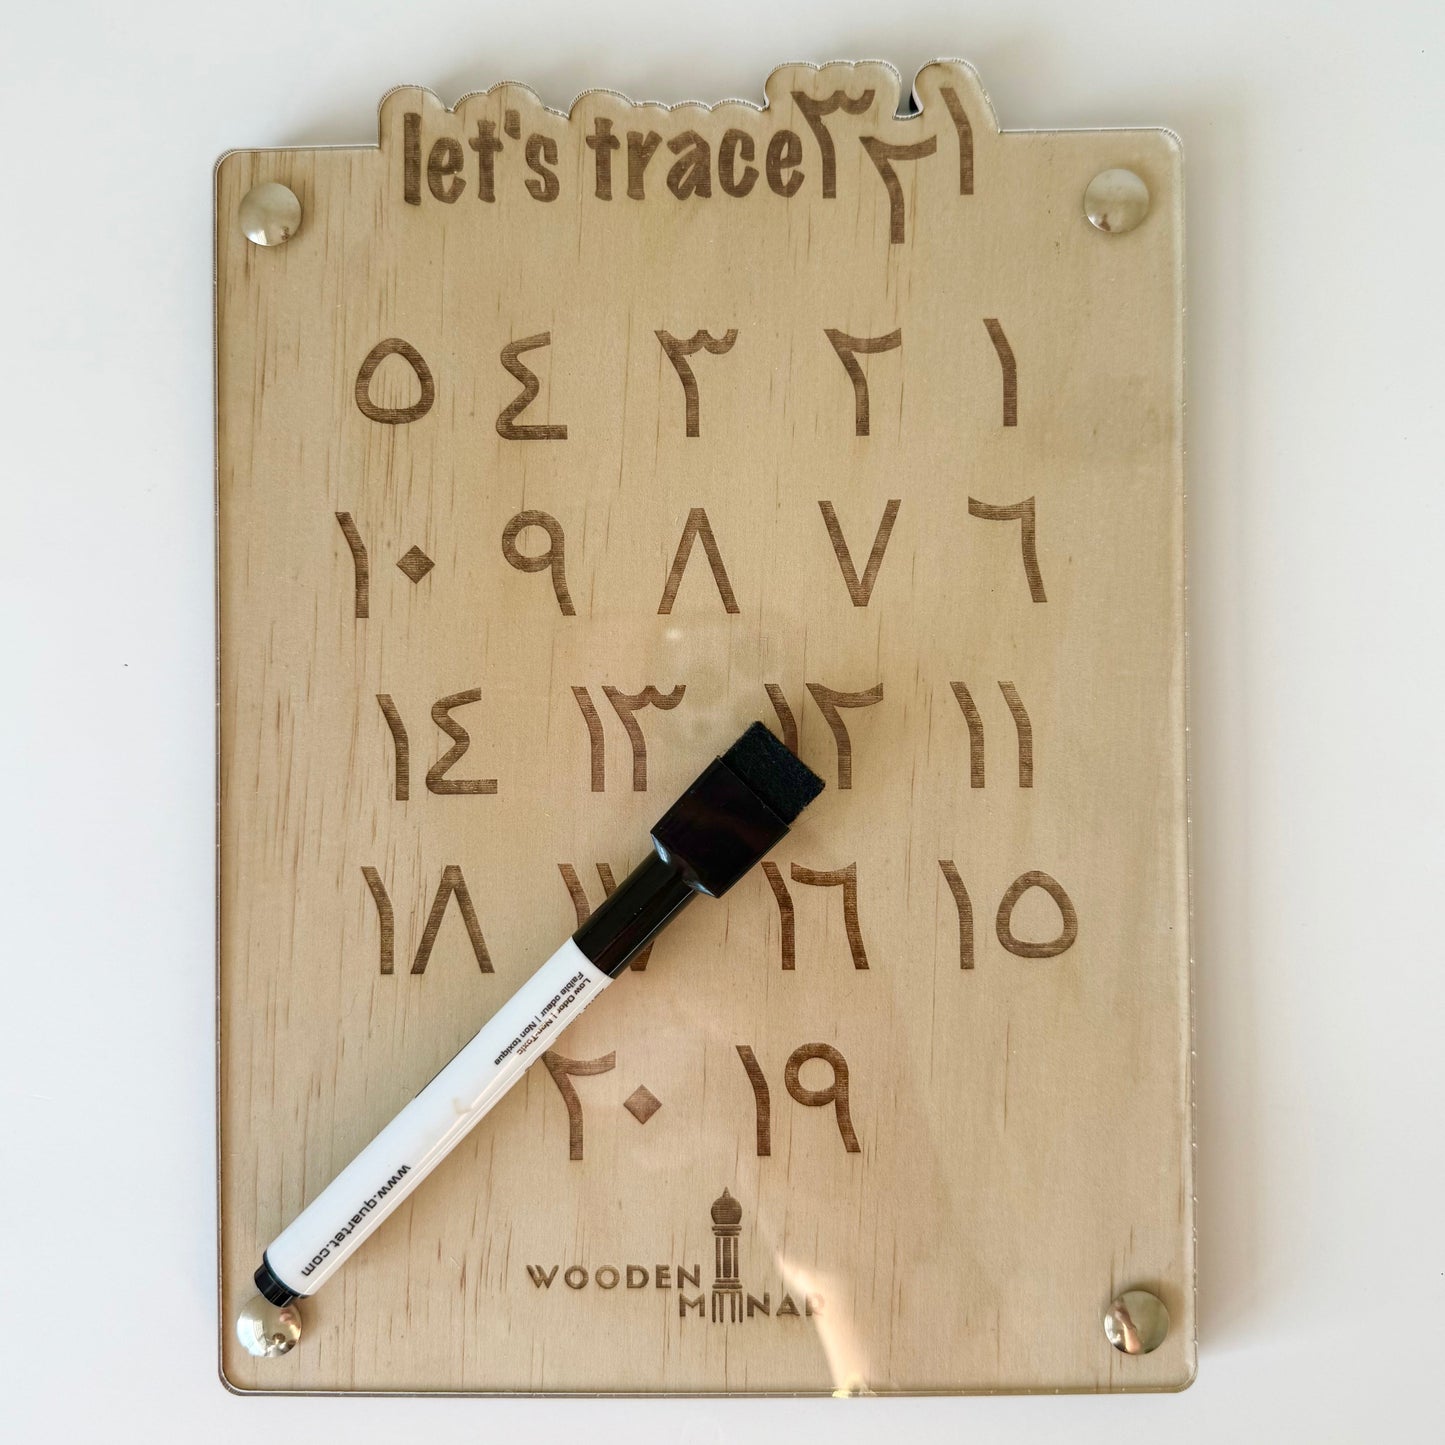 let's trace ٣٢١
١ ٢ ٣ ٤ ٥
٦ ٧ ٨ ٩ ١٠
١١ ١٢ ١٣ ١٤
١٥ ١٦ ١٧ ١٨
١٩ ٢٠
Low Odor | Non-Toxic
Faible odeur | Non toxique
www.quartet.com
WOODEN
MINAR